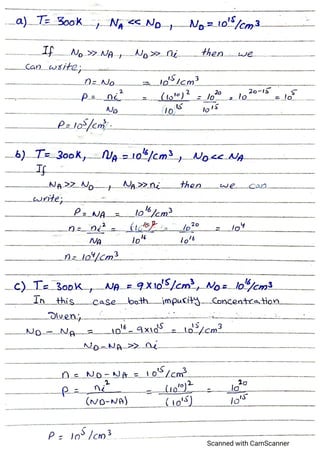 a) T= 300K , NA << ND , ND = 10¹⁵/cm³
If ND >> NA , ND >> ni then we
can write;
n = ND = 10¹⁵/cm³
P = ni²/ND = (10¹⁰)²/10¹⁵ = 10²⁰/10¹⁵ = 10²⁰⁻¹⁵ = 10⁵
P = 10⁵/cm³.
b) T= 300K, NA = 10¹⁶/cm³ , ND << NA
If
NA >> ND , NA >> ni then we can
write;
P = NA = 10¹⁶/cm³
n = ni²/NA = (10¹⁰)²/10¹⁶ = 10²⁰/10¹⁶ = 10⁴
n = 10⁴/cm³
C) T= 300K , NA = 9×10¹⁵/cm³, ND = 10¹⁶/cm³
In this case both impurity concentration
given,
ND - NA = 10¹⁶ - 9×10¹⁵ = 10¹⁵/cm³
ND-NA >> ni
n = ND - NA = 10¹⁵/cm³
P = ni²/(ND-NA) = (10¹⁰)²/(10¹⁵) = 10²⁰/10¹⁵
P = 10⁵/cm³
Scanned with CamScanner